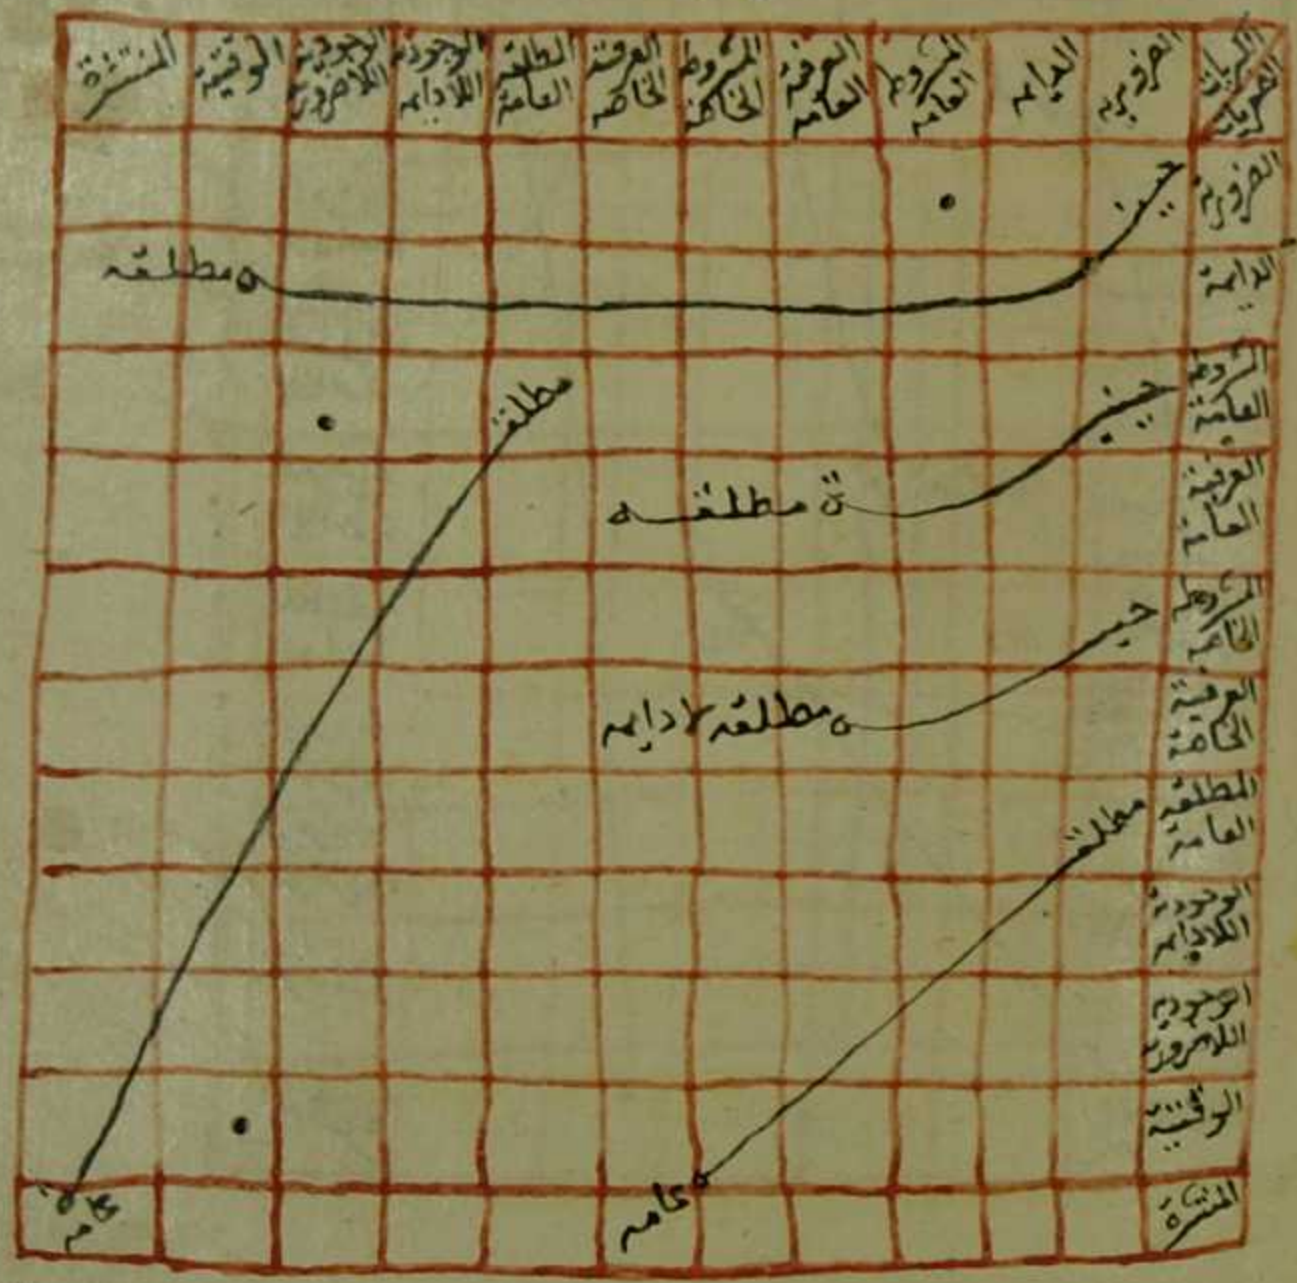 الكبريات
الصغريات
الضرورية
الدايمه
المشروطه
العامه
العرفية
العامه
المشروطه
الخاصه
العرفية
الخاصه
المطلقه
العامة
الوجودية
اللادايمه
الوجودية
اللاضرورية
الوقتية
المنتشرة
الضرورية
الدايمة
المشروطه
العامة
العرفية
العامة
المشروطه
الخاصة
العرفية
الخاصة
المطلقه
العامة
الوجودية
اللادايمه
الوجوديه
اللاضرورية
الوقتية
المنتشرة
حينيه مطلقه
حينية مطلقه
حينيه مطلقه لادايمه
مطلقة
عامه
مطلقة
عامه